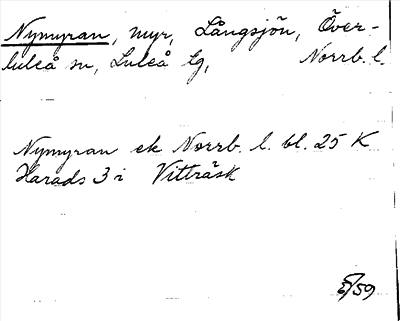 Nymyran, myr, Långsjön, Över-
luleå sn, Luleå lg, Norrb. l.
Nymyran ek Norrb. l. bl. 25 K
Harads 3 i Vitträsk
/59